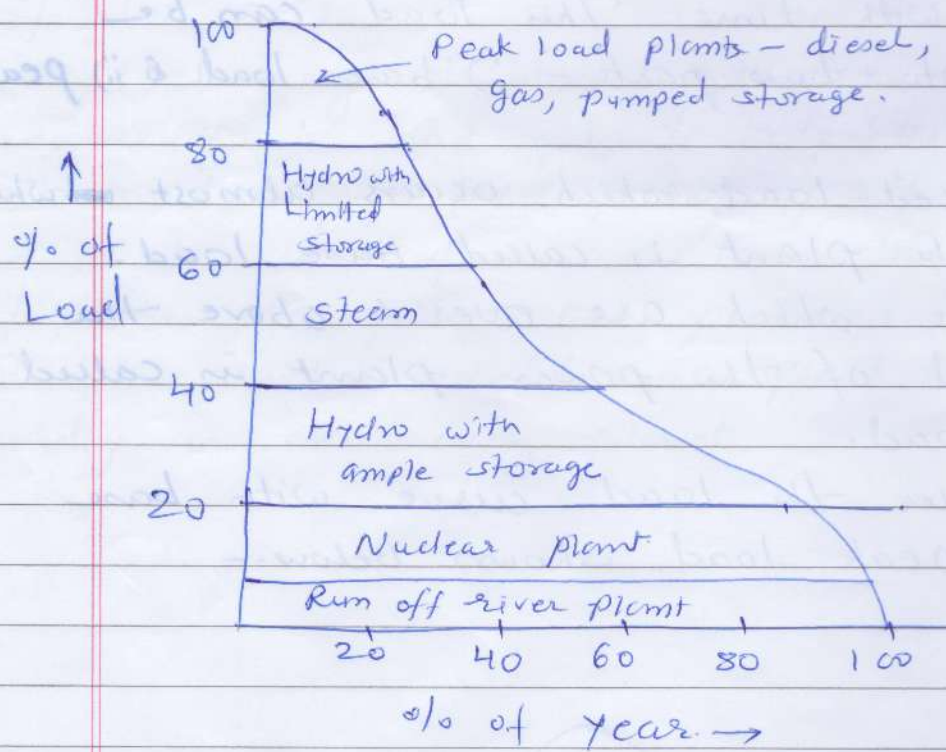 100
Peak load plants – diesel,
gas, pumped storage.
80
Hydro with
Limited
storage
% of
Load
60
Steam
40
Hydro with
ample storage
20
Nuclear plant
Run off river plant
20 40 60 80 100
% of year →